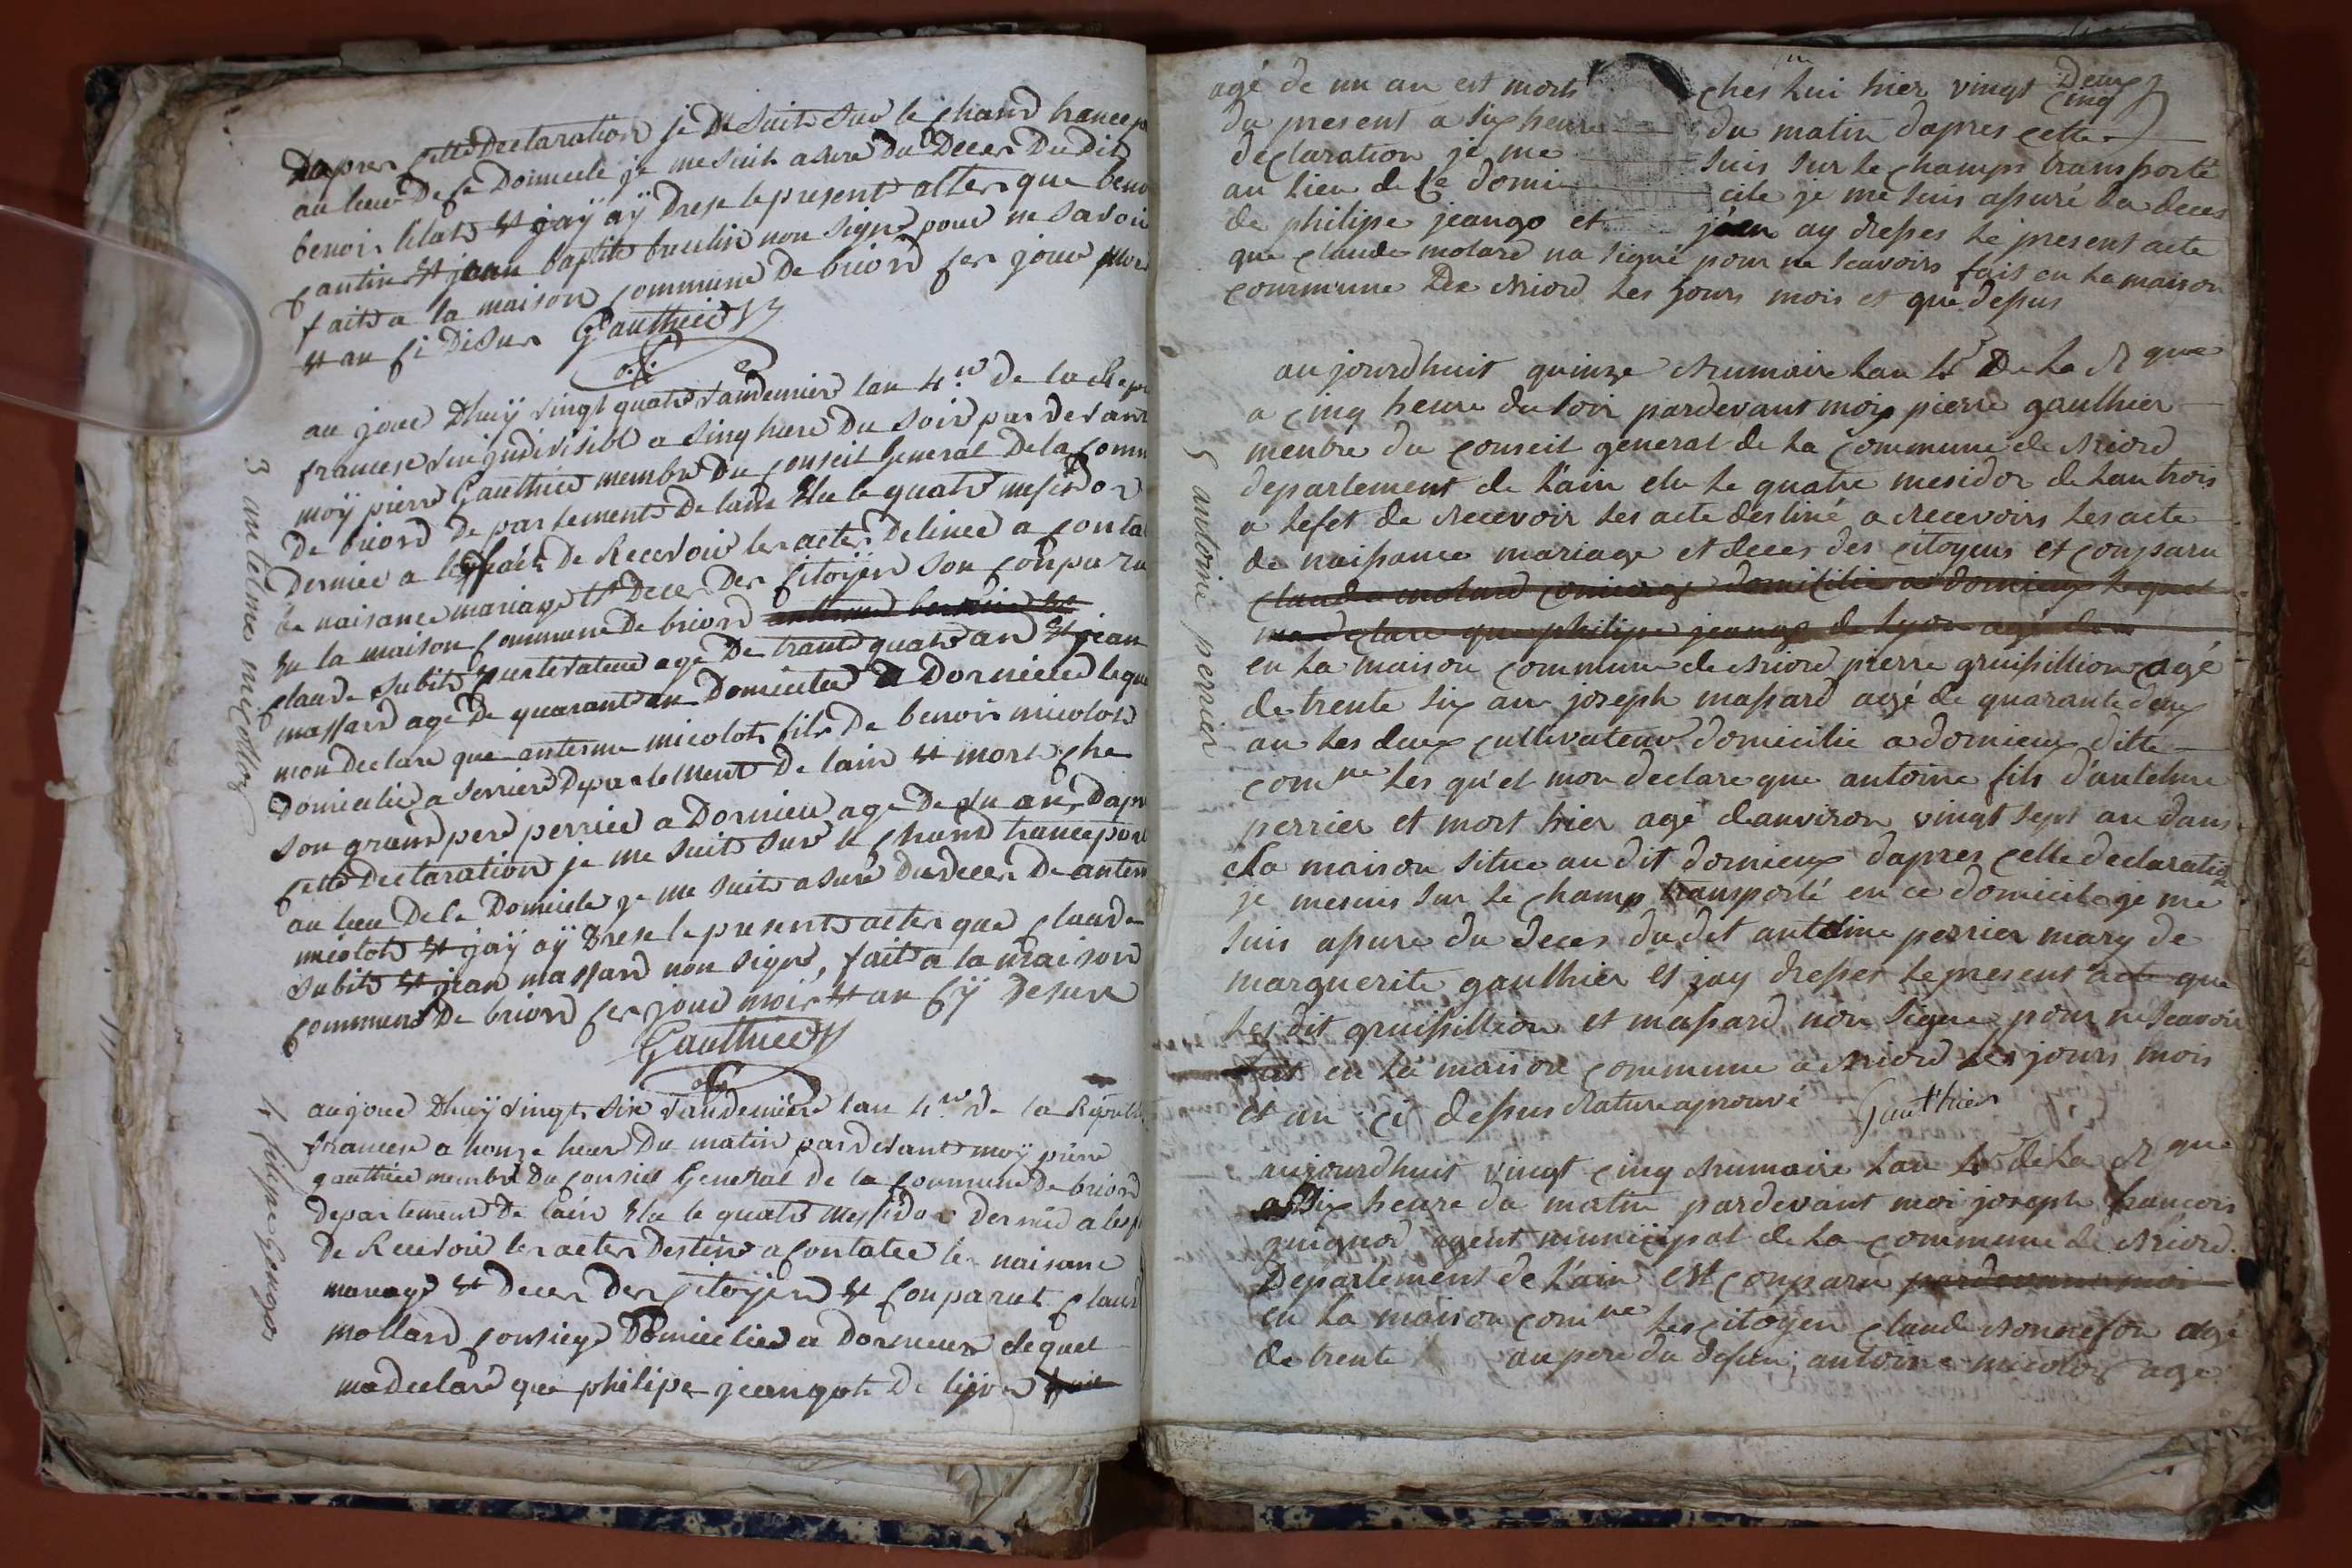 Dapres cette Declaration je me suits sur le chand trancep
au lieu De ce Domicile je me suits asuré Du Deces Du Dit
benois et jaÿ aÿ Drese le present actes que beno
cantin et jean baptite non signe pour ne savoir
faite a la maison commune De briord ses jour mois
et an si Desus Gauthier
au jour Dhuÿ vingt quatre vandemier lan 4.me de la Repu
francese une indivisible a sing heure Du soir par devant
moÿ pierre Gauthier membre Du conseil General De la comm
De briord De partement De lain Elu le quatre mesidor
Dernier a lesfaits De Recevoir les actes Destinee a conta
te naisance mariage et Deces Des sitoÿen son conparu
En la maison commune De briord
claude subit cultivateur age De trante quatre an et jean
massard age De quarante an Domicilie a Dornieu leque
mon Declare que antesme micolot fils De benois micolot
Domicilie a serriere Departement De lain et mort che
son grand pere perrier a Dornieu age De un an, Dapre
cette Declaration je me suits sur le chand trancepor
au lieu De ce Domicile je me suits asuré Du Deces De antes
micolot et jaÿ aÿ Drese le present actes que claude
subit et jean massard non signe, fait a la maison
commune De briord ses jour mois et an sÿ Desus
Gauthier
3 antelme micollot
aujour Dhuÿ vingt six vandemiere lan 4.me De la Republi
francese a honze heur Du matin par devant moÿ pierre
gauthier membre Du consiel General De la commune De briord
Departement De lain Elu le quatre Messidor Dernier a lesf
De Recevoir les actes Destine a contatee les naisanc
mariage et Deces Des sitoÿen et conparut claud
Mollard consiege Domicilie a Dornieu lequel
ma Declare que philipe jeangot De lyon
4 filipe Gongot
agé de un an est morts ches lui hier vingt Deux cinq
du present a six heure du matin dapres cette
declaration je me suis sur le champs transporté
au lieu de ce domicile je me suis assuré du deces
de philipe jeango et jeen ay dresses le present acte
que claude molard na signé pour ne scavoirs fait en la maison
commune De Briord les jours mois et que dessus
aujourdhuit quinze brumaire lan 4 De la R que
a cinq heure du soir pardevant mois pierre gaulthier
menbre du conseil general de la commune de Briord
departement de lain elu le quatre mesidor de lan trois
a lefet de recevoir les acte destiné a recevoirs les acte
de naissance mariage et deces des citoyens et conparu
claude molard consierge domicilie a dornieux lequel
ma declare que philipe jeango de lyon agé de
en la maison commune de briord pierre gruissillion agé
de trente six an joseph massard agé de quarante deux
an les deux cultivateur domicilie a dornieux ditte
comne les quel mon declare que antoine fils d'antelme
perrier et mort hier agé danviron vingt sept an dans
sa maison situe au dit dornieux dapres cette declaration
je mesuis sur le champ transporté en ce domicile je me
suis assure du deces du dit antoine perrier mary de
marguerite gaulthier et jay dresses le present acte que
les dit gruissillion et massard non signe pour ne scavoir
fait en la maison commune a briord les jours mois
et an ci dessus rature aprouvé Gaulthier
5 antoine perrier
aujourdhuit vingt cinq brumaire lan 4 de la R que
a dix heure du matin pardevant moi joseph francois
guignod agent municipal de la commune de Briord.
Departement de l'ain est conparu pardevant moi
en la maison comne les citoyen claude bonnefon agé
de trente an pere du defun; antoine micolot agé